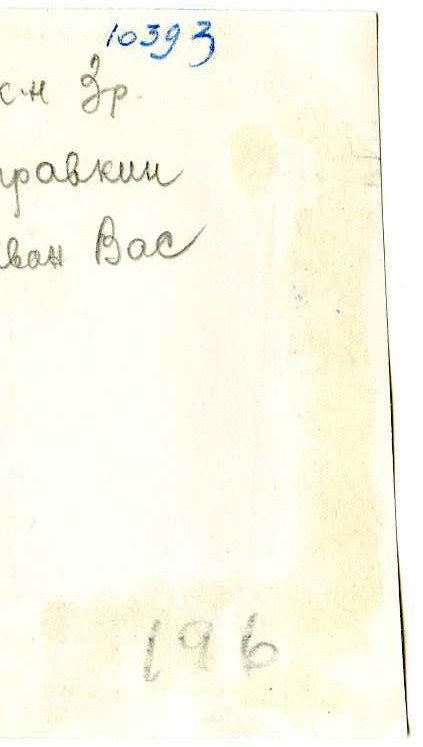 10393
к-н Зр.
правкин
ван Вас
196